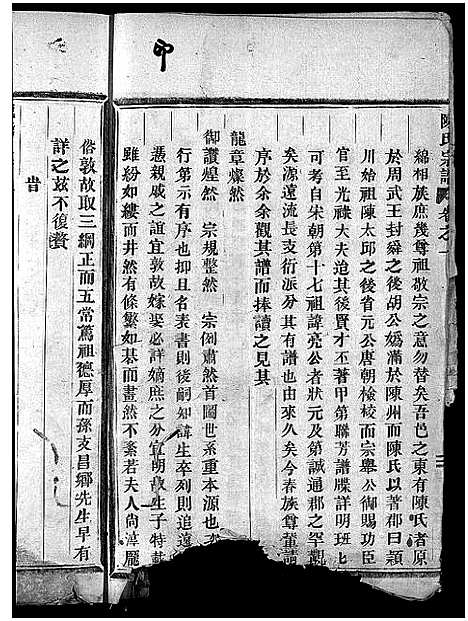 陳氏宗譜 卷之一
綿相族庶幾尊祖敬宗之意勿替矣吾邑之東有陳氏者原
於周武王封舜之後胡公媯滿於陳州而陳氏以著郡曰潁
川始祖陳太邱之後省元公唐朝檢校而宗舉公御賜功臣
官至光祿大夫迨其後賢才丕著甲第聯芳譜牒詳明班七
可考自宋朝第十七祖諱亮公者狀元及第誠通郡之罕觀
矣源遠流長支衍派分其有譜也由來久矣今春族尊董請
序於余余觀其譜而捧讀之見其
龍章燦然
御讚煌然 宗規整然 宗倒肅然首圖世系重本源也
行第有序也抑且名表書則後嗣知諱生卒列則追遠
憑親戚之誼宜敦故嫁娶必詳嫡庶之分宜明故生子特
雖紛如縷而井然有條繁如碁而畫然不紊若夫人尚淳龐
俗敦故取三綱正而五常篤祖德厚而孫支昌鄉先生早有
詳之玆不復贅
旹
印